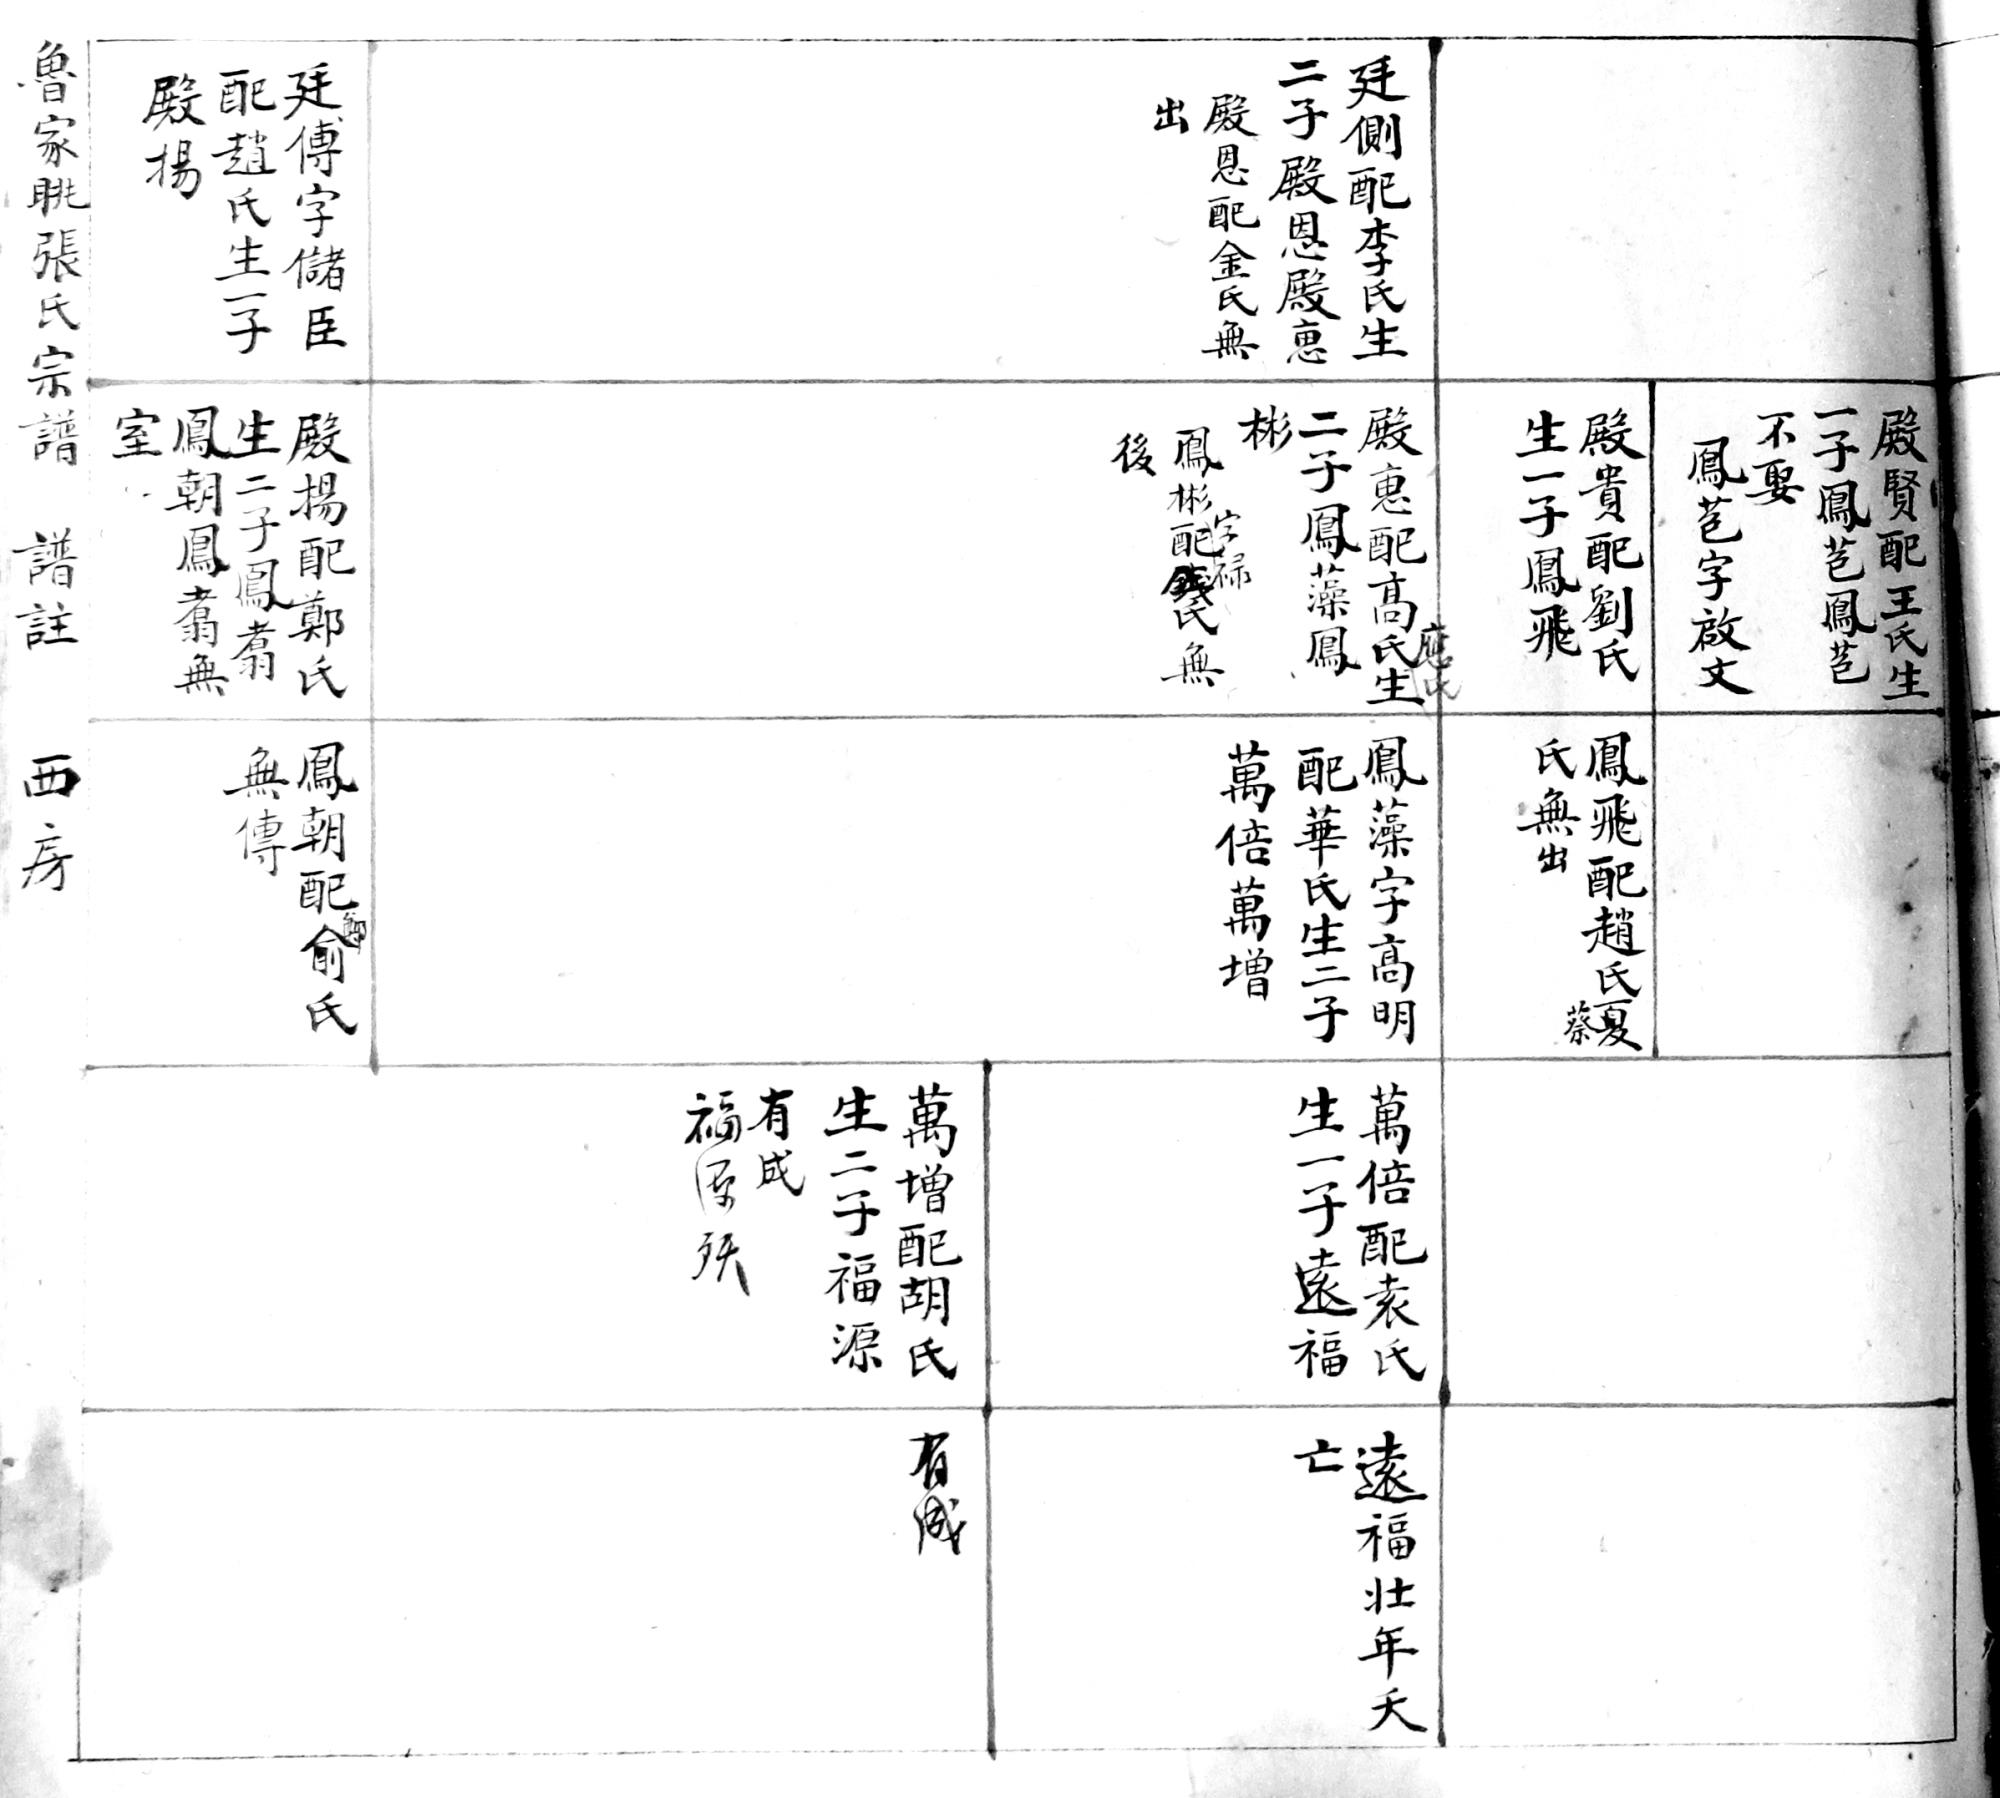 廷側配李氏生
二子殿恩殿惠
殿恩配金氏無
出
廷傅字儲臣
配趙氏生一子
殿揚
殿賢配王氏生
一子鳳芑鳳芑
不娶
鳳芑字啟文
殿貴配劉氏
生一子鳳飛
應氏
殿惠配高氏生
二子鳳藻鳳
彬
字禄
鳳彬配錢氏無
後
殿揚配鄭氏
生二子鳳翥
鳳朝鳳翥無
室
鳳飛配趙氏夏
蔡
氏無出
鳳藻字高明
配華氏生二子
萬倍萬增
鳳朝配俞氏
無傳
萬倍配袁氏
生一子遠福
萬增配胡氏
生二子福源
有成
福源殀
遠福壯年夭
亡
有成
魯家晀張氏宗譜 譜註 西房